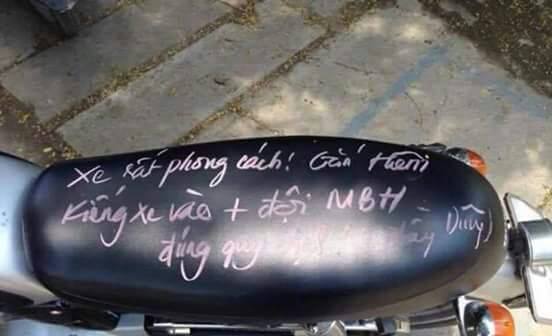 Xe rất phong cách! Gắn thêm
kiếng xe vào + đội MBH
đúng quy